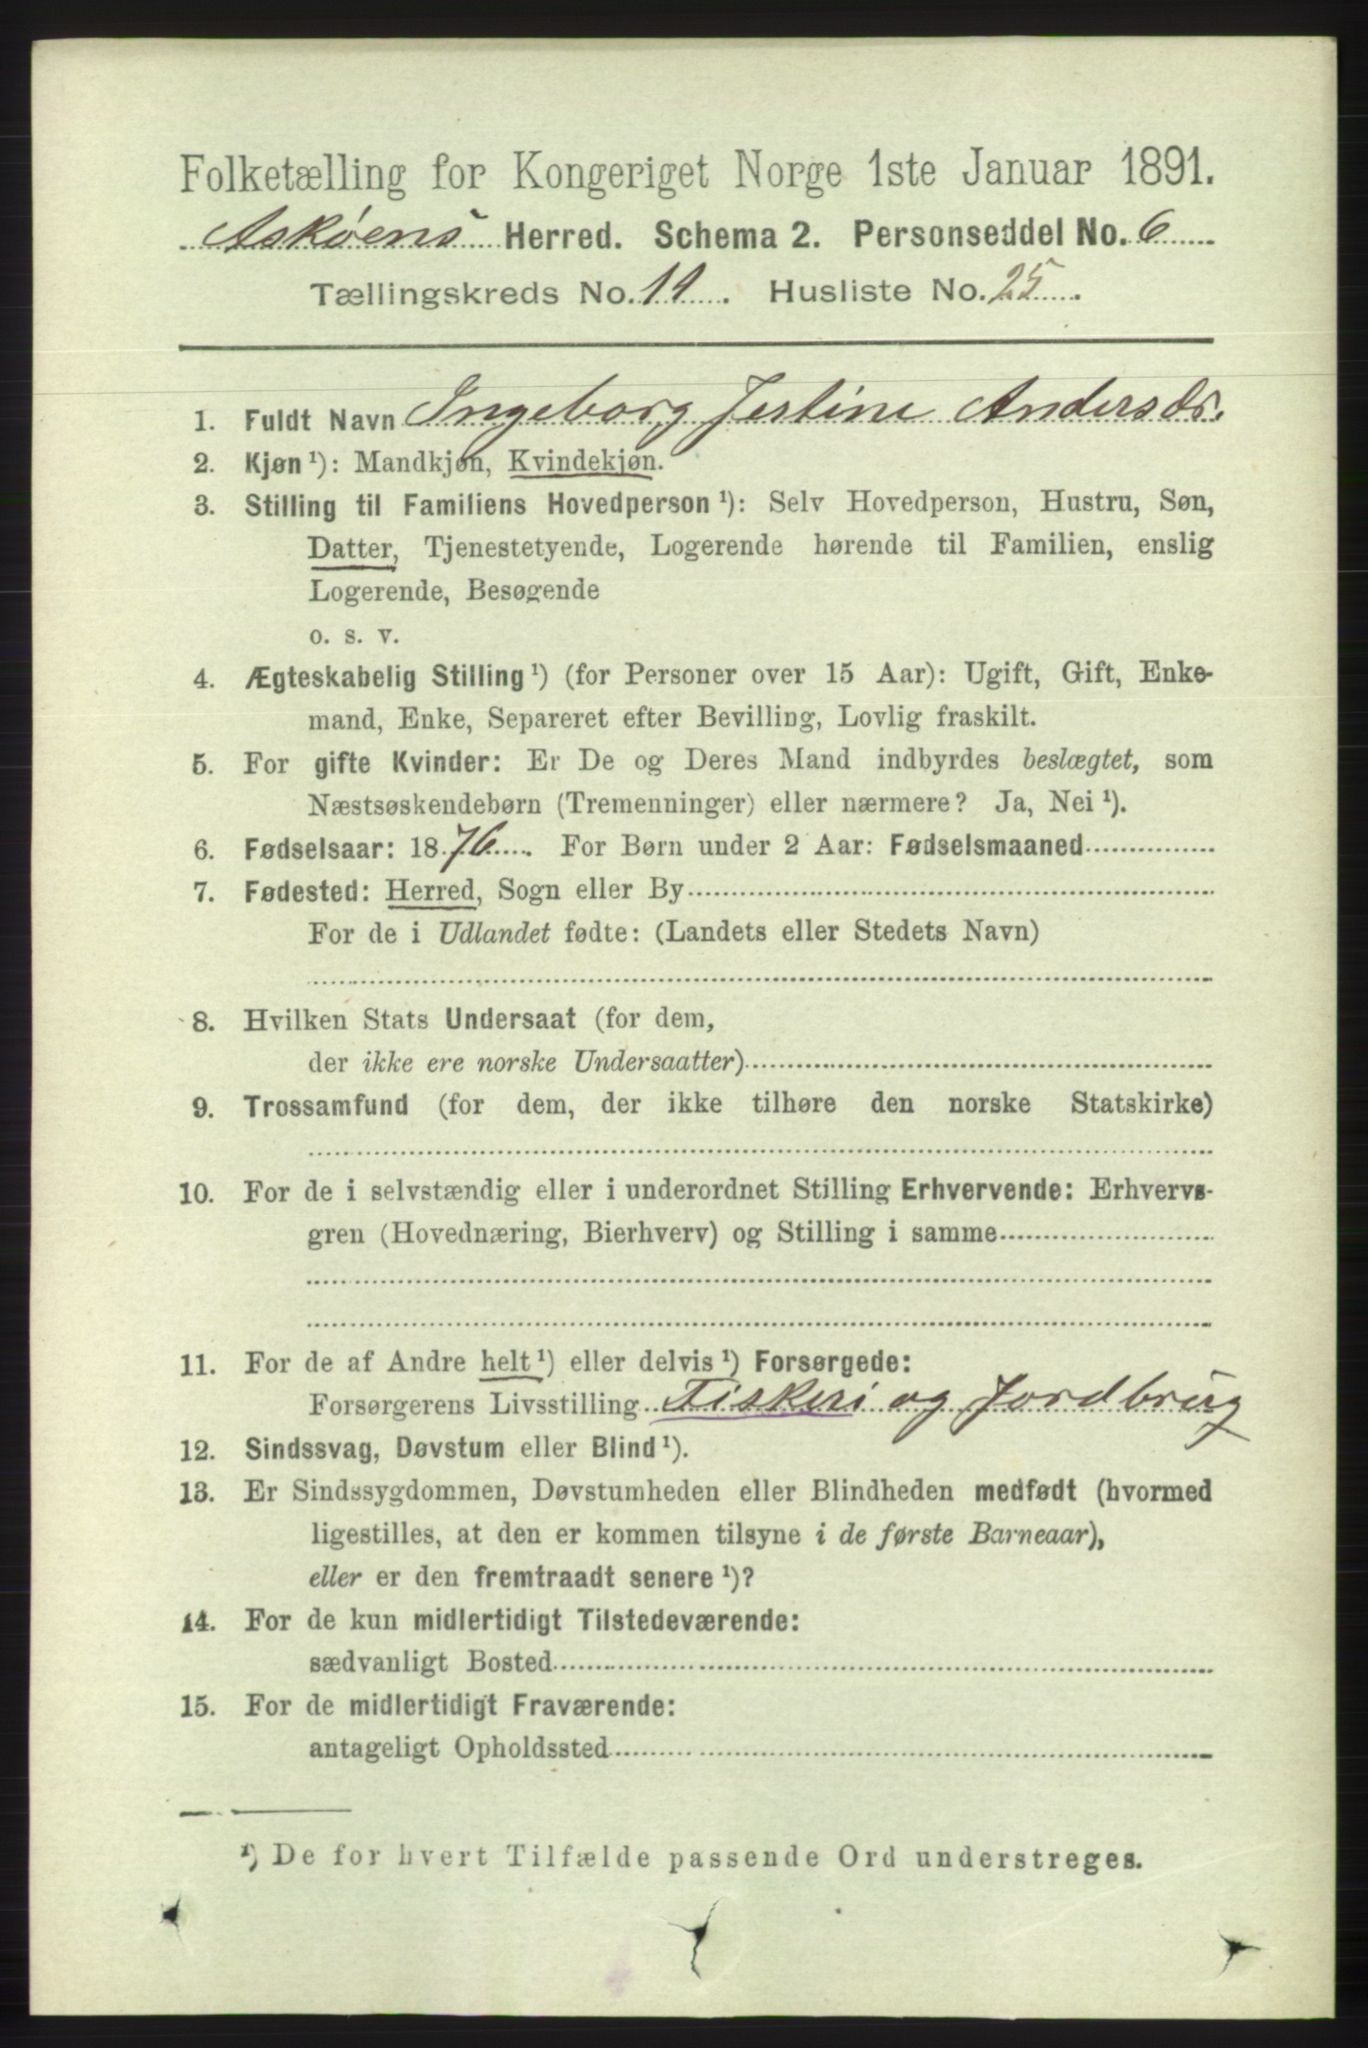 Folketælling for Kongeriget Norge 1ste Januar 1891.
Askøens Herred. Schema 2. Personseddel No. 6
Tællingskreds No. 14. Husliste No. 25.
1. Fuldt Navn Ingeborg Jertine Andersdr.
2. Kjøn ¹): Mandkjøn, Kvindekjøn.
3. Stilling til Familiens Hovedperson ¹): Selv Hovedperson, Hustru, Søn,
Datter, Tjenestetyende, Logerende hørende til Familien, enslig
Logerende, Besøgende
o. s. v.
4. Ægteskabelig Stilling ¹) (for Personer over 15 Aar): Ugift, Gift, Enke-
mand, Enke, Separeret efter Bevilling, Lovlig fraskilt.
5. For gifte Kvinder: Er De og Deres Mand indbyrdes beslægtet, som
Næstsøskendebørn (Tremenninger) eller nærmere? Ja, Nei ¹).
6. Fødselsaar: 1876. For Børn under 2 Aar: Fødselsmaaned
7. Fødested: Herred, Sogn eller By
For de i Udlandet fødte: (Landets eller Stedets Navn)
8. Hvilken Stats Undersaat (for dem,
der ikke ere norske Undersaatter)
9. Trossamfund (for dem, der ikke tilhøre den norske Statskirke)
10. For de i selvstændig eller i underordnet Stilling Erhvervende: Erhvervs-
gren (Hovednæring, Bierhverv) og Stilling i samme
11. For de af Andre helt ¹) eller delvis ¹) Forsørgede:
Forsørgerens Livsstilling Fiskeri og Jordbrug
12. Sindssvag, Døvstum eller Blind ¹).
13. Er Sindssygdommen, Døvstumheden eller Blindheden medfødt (hvormed
ligestilles, at den er kommen tilsyne i de første Barneaar),
eller er den fremtraadt senere ¹)?
14. For de kun midlertidigt Tilstedeværende:
sædvanligt Bosted
15. For de midlertidigt Fraværende:
antageligt Opholdssted
¹) De for hvert Tilfælde passende Ord understreges.